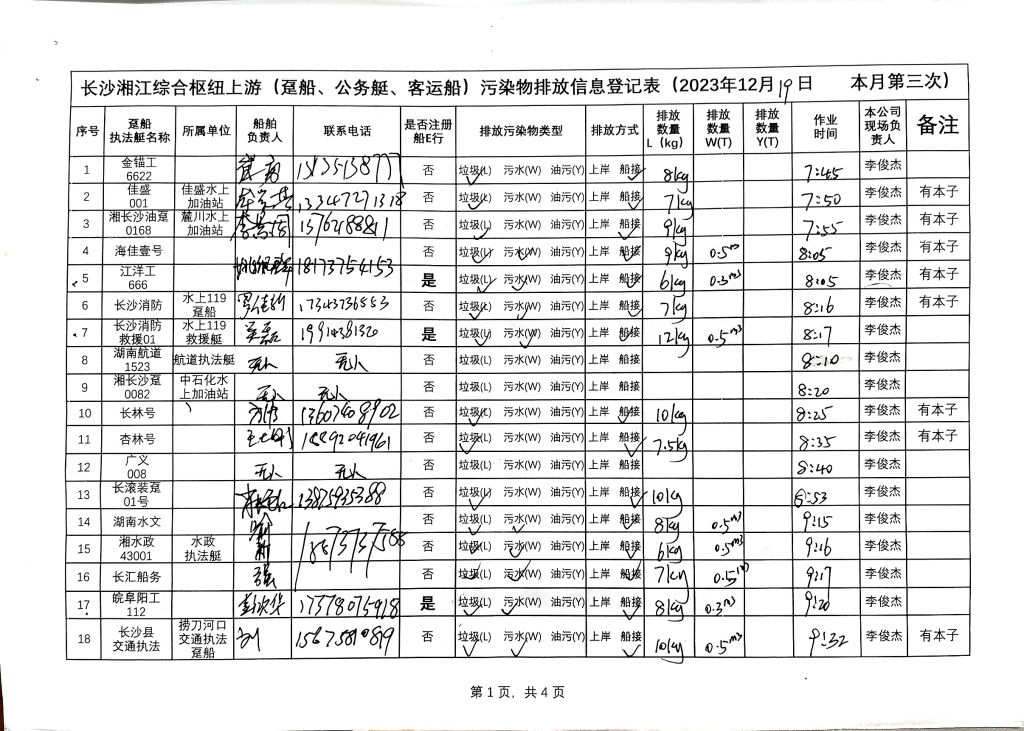 长沙湘江综合枢纽上游（趸船、公务艇、客运船）污染物排放信息登记表（2023年12月19日 本月第三次）
序号 趸船执法艇名称 所属单位 船舶负责人 联系电话 是否注册船E行 排放污染物类型 排放方式 排放数量L（kg） 排放数量W(T) 排放数量Y(T) 作业时间 本公司现场负责人 备注
1 金锚工6622 否 垃圾(L) 污水(W) 油污(Y) 上岸 船接 8kg 7:45 李俊杰
2 佳盛001 佳盛水上加油站 13347271318 否 垃圾(L) 污水(W) 油污(Y) 上岸 船接 7kg 7:50 李俊杰 有本子
3 湘长沙油趸0168 麓川水上加油站 否 垃圾(L) 污水(W) 油污(Y) 上岸 船接 9kg 7:55 李俊杰 有本子
4 海佳壹号 否 垃圾(L) 污水(W) 油污(Y) 上岸 船接 9kg 0.5m 8:05 李俊杰 有本子
5 江洋工666 18173754153 是 垃圾(L) 污水(W) 油污(Y) 上岸 船接 6kg 0.3m3 8:05 李俊杰 有本子
6 长沙消防 水上119趸船 17343736553 否 垃圾(L) 污水(W) 油污(Y) 上岸 船接 7kg 8:16 李俊杰 有本子
7 长沙消防救援01 水上119救援艇 吴磊 19914381320 是 垃圾(L) 污水(W) 油污(Y) 上岸 船接 12kg 0.5m3 8:17 李俊杰
8 湖南航道1523 航道执法艇 无人 无人 否 垃圾(L) 污水(W) 油污(Y) 上岸 船接 8:10 李俊杰
9 湘长沙趸0082 中石化水上加油站 无人 无人 否 垃圾(L) 污水(W) 油污(Y) 上岸 船接 8:20 李俊杰
10 长林号 13607408902 否 垃圾(L) 污水(W) 油污(Y) 上岸 船接 10kg 8:25 李俊杰 有本子
11 杏林号 18892041961 否 垃圾(L) 污水(W) 油污(Y) 上岸 船接 7.5kg 8:35 李俊杰 有本子
12 广义008 无人 无人 否 垃圾(L) 污水(W) 油污(Y) 上岸 船接 8:40 李俊杰
13 长滚装趸01号 13875935388 否 垃圾(L) 污水(W) 油污(Y) 上岸 船接 10kg 8:53 李俊杰
14 湖南水文 否 垃圾(L) 污水(W) 油污(Y) 上岸 船接 8kg 0.5m3 9:15 李俊杰
15 湘水政43001 水政执法艇 否 垃圾(L) 污水(W) 油污(Y) 上岸 船接 6kg 0.5m3 9:16 李俊杰
16 长汇船务 否 垃圾(L) 污水(W) 油污(Y) 上岸 船接 7kg 0.5m3 9:17 李俊杰
17 皖阜阳工112 17378075918 是 垃圾(L) 污水(W) 油污(Y) 上岸 船接 8kg 0.3m3 9:20 李俊杰
18 长沙县交通执法 捞刀河口交通执法趸船 否 垃圾(L) 污水(W) 油污(Y) 上岸 船接 10kg 0.5m3 9:32 李俊杰 有本子
第 1 页，共 4 页